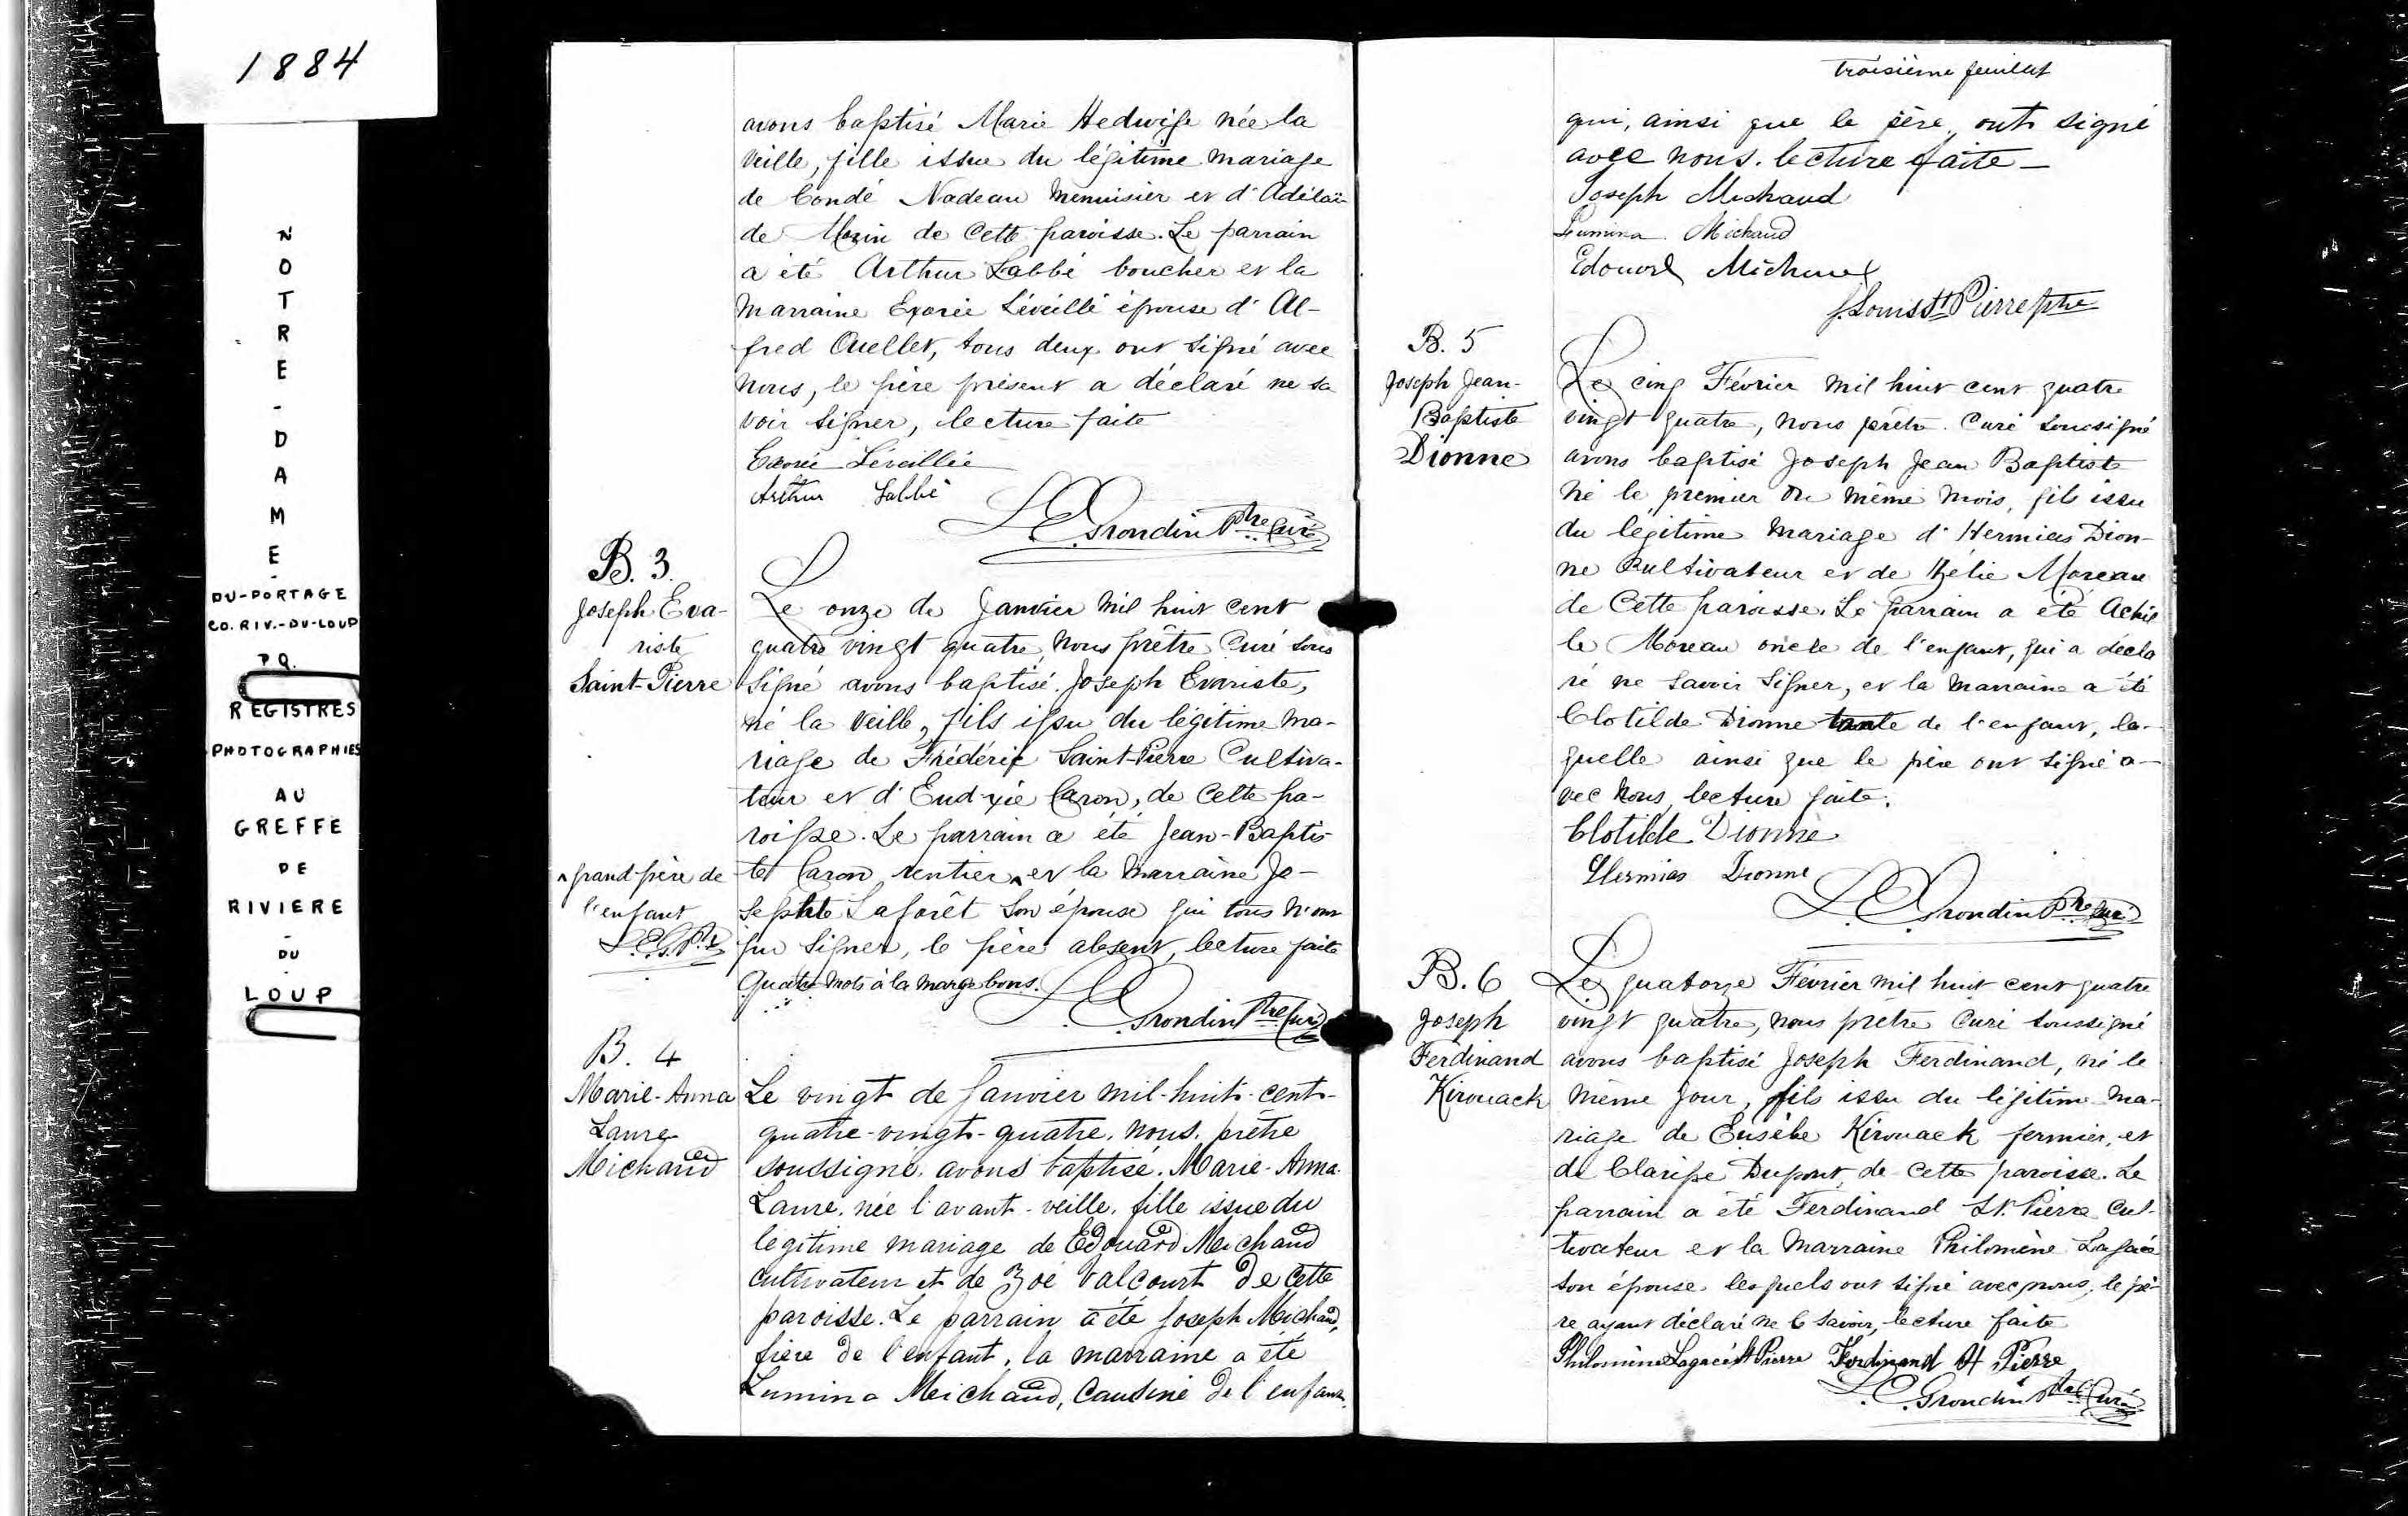 1884
NOTRE-DAME-
DU-PORTAGE
CO. RIV.-DU-LOUP
P.Q.
REGISTRES
PHOTOGRAPHIES
AU
GREFFE
DE
RIVIERE
-
DU
-
LOUP
avons baptisé Marie Hedwige née la
veille, fille issue du légitime mariage
de Condé Nadeau menuisier et d'Adélaï-
de Morin de cette paroisse. Le parrain
a été Arthur Labbé boucher et la
marraine Exorée Léveillé épouse d'Al-
fred Ouellet, tous deux ont signé avec
nous, le père présent a déclaré ne sa
voir signer, lecture faite
Exorée Léveillée
Arthur Labbé
L. E. Grondin Ptre Curé
B. 3.
Joseph Eva-
riste
Saint-Pierre
Le onze de Janvier mil huit cent
quatre vingt quatre, nous prêtre Curé sous
signé avons baptisé Joseph Evariste,
né la veille, fils issu du légitime ma-
riage de Frédéric Saint-Pierre Cultiva-
teur et d'Eudoxie Caron, de cette pa-
roisse. Le parrain a été Jean-Baptis
te Caron, rentier ^ et la marraine Jo-
sephte Laforêt son épouse qui tous n'ont
pu signer, le père absent, lecture faite
Quatre mots à la marge bons.
^ grand père de
l'enfant
L.E.G. Ptre
L. E. Grondin Ptre Curé
B. 4
Marie-Anna
Laure
Michaud
Le vingt de Janvier mil-huit-cent-
quatre-vingt-quatre, nous, prêtre
soussigné, avons baptisé Marie-Anna-
Laure, née l'avant-veille, fille issue du
légitime mariage de Edouard Michaud
cultivateur et de Zoé Valcourt de cette
paroisse. Le parrain a été Joseph Michaud,
frère de l'enfant, la marraine a été
Lumina Michaud, cousine de l'enfant,
troisième feuillet
qui, ainsi que le père, ont signé
avec nous. lecture faite_
Joseph Michaud
Lumina Michaud
Edouard Michaud
J. Louis St Pierre ptre
B. 5
Joseph Jean-
Baptiste
Dionne
Le cinq Février mil huit cent quatre
vingt quatre, nous prêtre Curé soussigné
avons baptisé Joseph Jean Baptiste
né le premier du même mois, fils issu
du légitime mariage d'Hermias Dion-
ne Cultivateur et de Zélie Moreau
de cette paroisse. Le parrain a été Achil
le Moreau oncle de l'enfant, qui a décla
ré ne savoir signer, et la marraine a été
Clotilde Dionne tante de l'enfant, la-
quelle ainsi que le père ont signé a-
vec nous, lecture faite.
Clotilde Dionne
Hermias Dionne
L. E. Grondin Ptre Curé
B. 6
Joseph
Ferdinand
Kirouack
Le quatorze Février mil huit cent quatre
vingt quatre, nous prêtre Curé soussigné
avons baptisé Joseph Ferdinand, né le
même jour, fils issu du légitime ma-
riage de Eusèbe Kirouack fermier, et
de Clarisse Dupont, de cette paroisse. Le
parrain a été Ferdinand St. Pierre Cul-
tivateur et la marraine Philomène Lagacé
son épouse lesquels ont signé avec nous, le pè-
re ayant déclaré ne le savoir, lecture faite
Philomène Lagacé St Pierre Ferdinand St Pierre
L. E. Grondin Ptre Curé